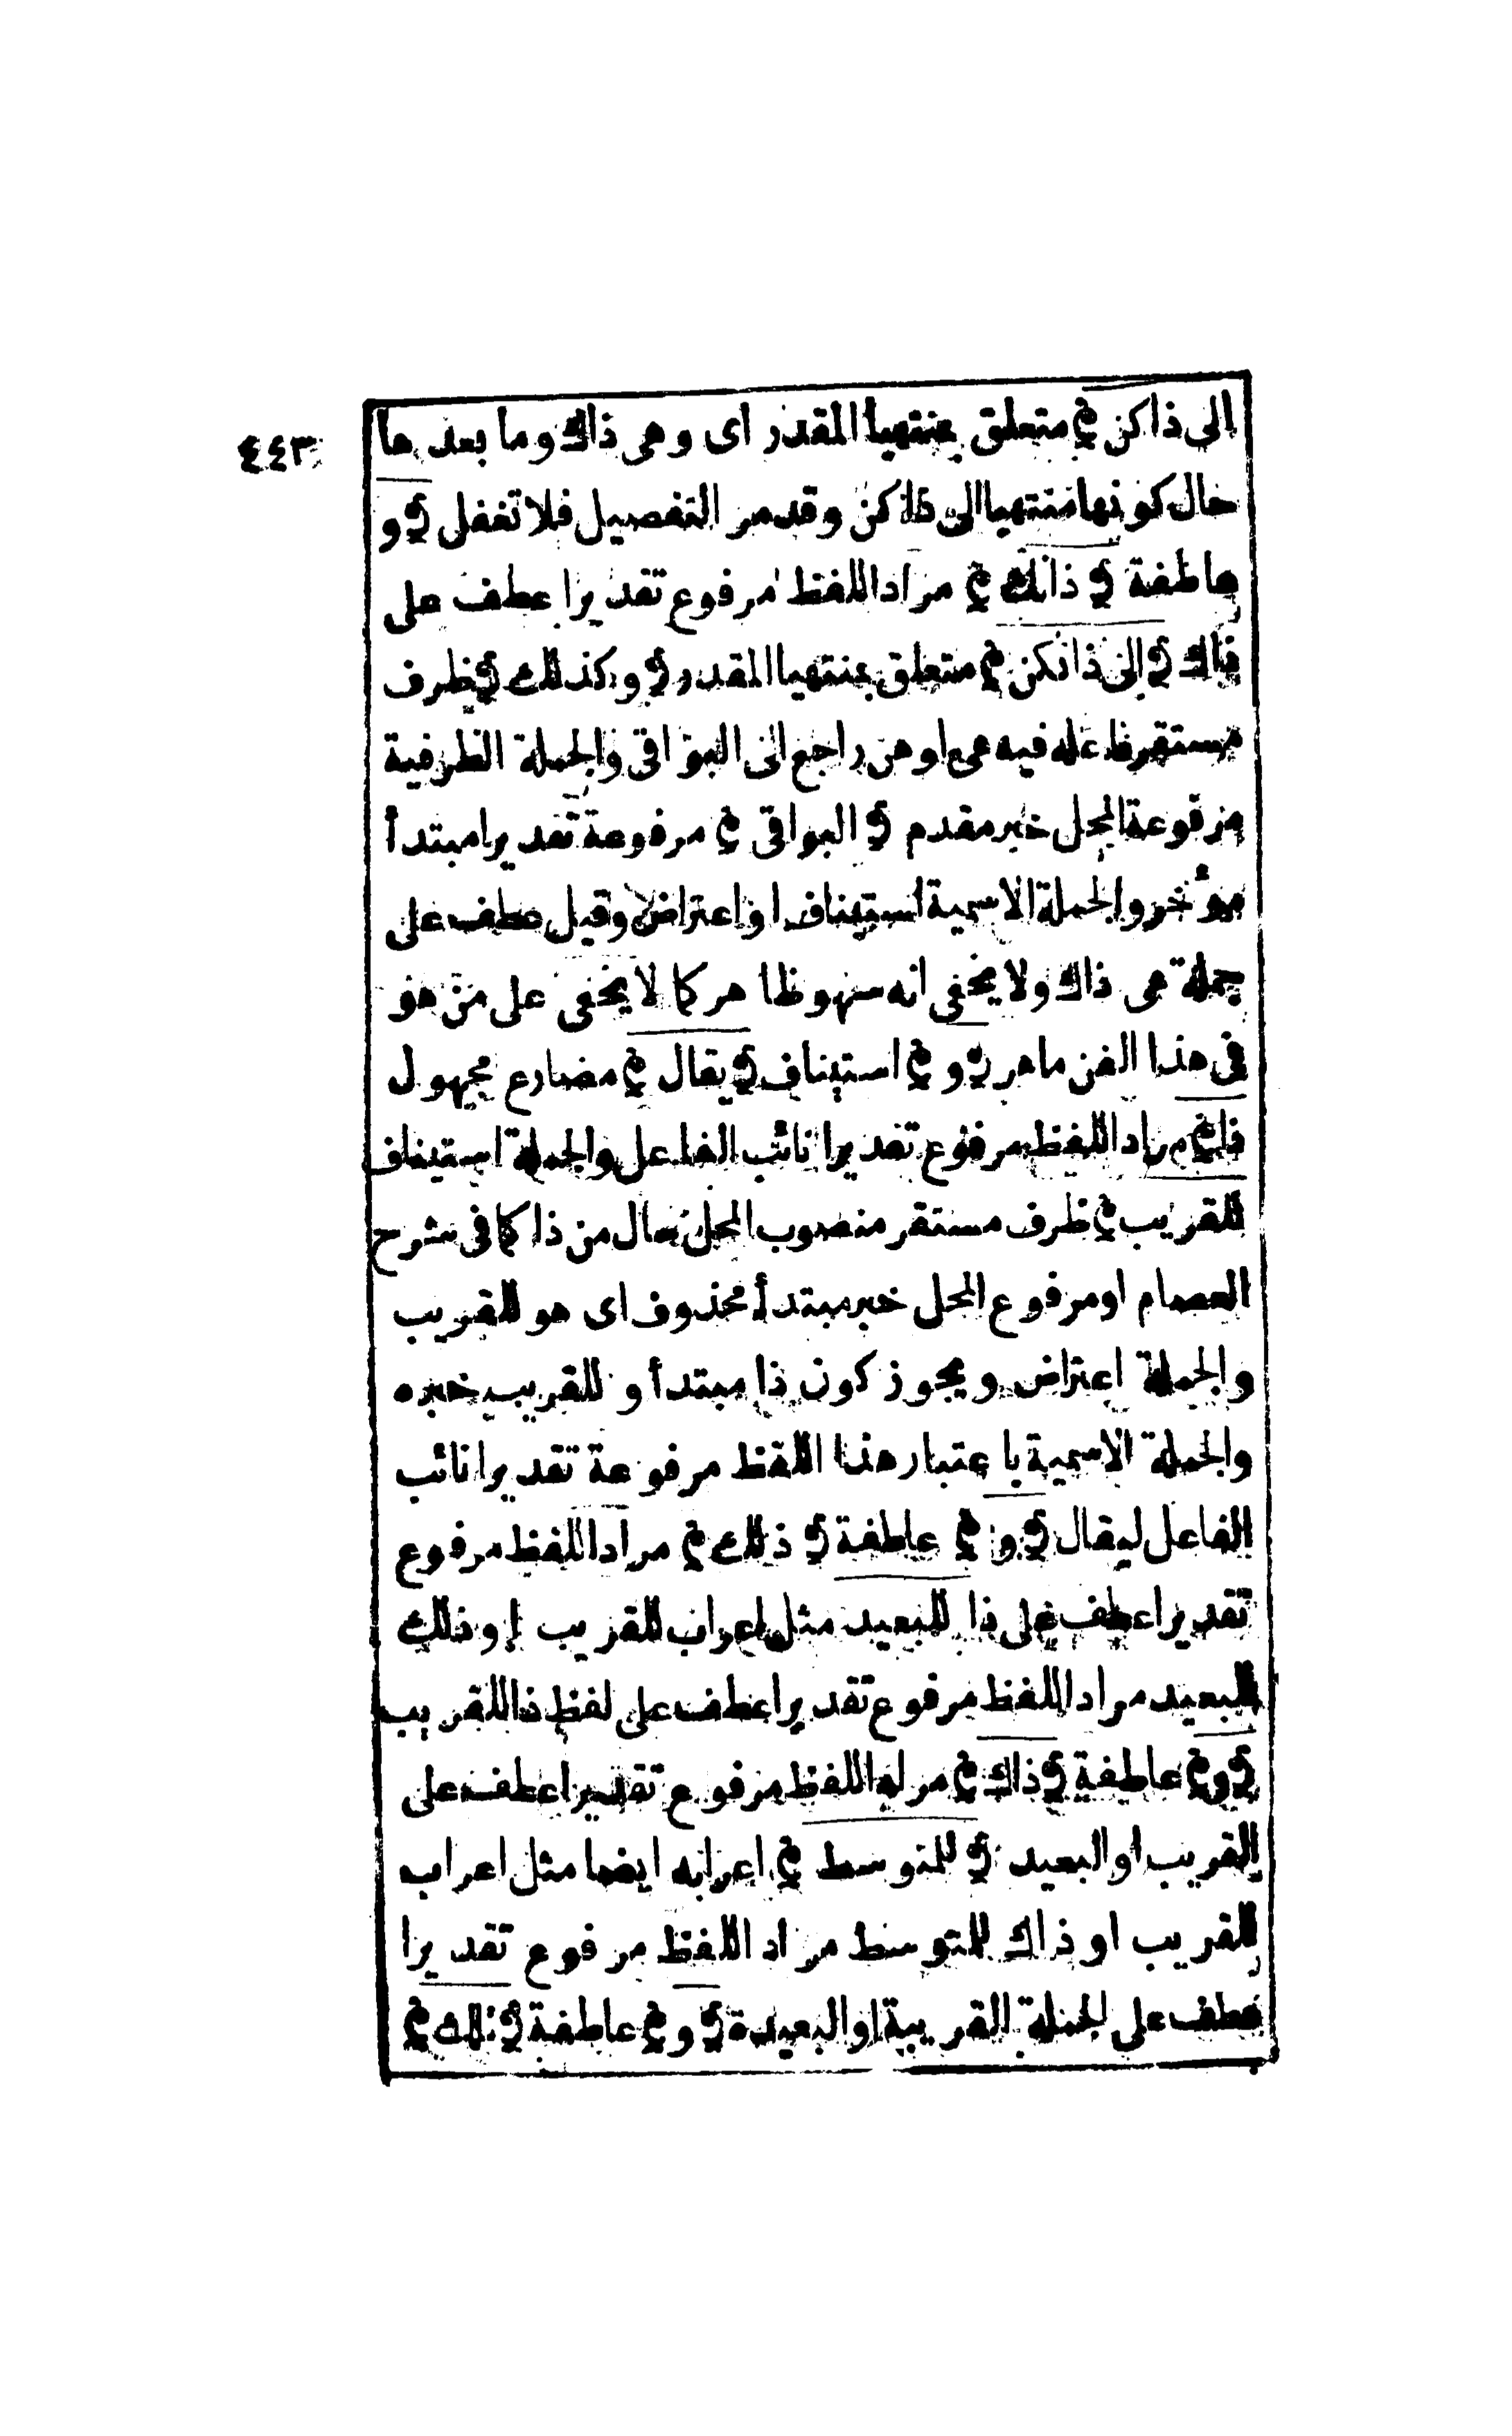 ٤٤٣
الى ذاكن ﴾ متعلق بمنتهيا المقدر اى وهى ذاك وما بعدها
حال كونها منتهيا الى ذاكن وقد مر التفصيل فلا تغفل ﴿ و
عاطفة ﴿ ذانك ﴾ مراد اللفظ مرفوع تقديرا عطف على
ذاك ﴿ الى ذانكن ﴾ متعلق بمنتهيا المقدر ﴿ وكذلك ﴿ ظرف
مستقر فاعله فيه هى او هن راجع الى البواقى والجملة الظرفية
مرفوعة المحل خبر مقدم ﴿ البواقى ﴾ مرفوعة تقديرا مبتدأ
مؤخر والجملة الاسمية استيناف او اعتراض وقيل عطف على
جملة هى ذاك ولا يخفى انه سهو ظاهر كما لا يخفى على من هو
فى هذا الفن ماهر ﴿ و ﴾ استيناف ﴿ يقال ﴾ مضارع مجهول
ذا ﴾ مراد اللفظ مرفوع تقديرا نائب الفاعل والجملة استيناف
للقريب ﴾ ظرف مستقر منصوب المحل حال من ذا كما فى شرح
العصام او مرفوع المحل خبر مبتدأ محذوف اى هو للقريب
والجملة اعتراض ويجوز كون ذا مبتدأ و للقريب خبره
والجملة الاسمية باعتبار هذا اللفظ مرفوعة تقديرا نائب
الفاعل ليقال ﴿ و ﴾ عاطفة ﴿ ذلك ﴾ مراد اللفظ مرفوع
تقديرا عطف على ذا للبعيد مثل اعراب للقريب او ذلك
للبعيد مراد اللفظ مرفوع تقديرا عطف على لفظ ذا للقريب
﴿ و ﴾ عاطفة ﴿ ذاك ﴾ مراد اللفظ مرفوع تقديرا عطف على
القريب او البعيد ﴿ للمتوسط ﴾ اعرابه ايضا مثل اعراب
للقريب او ذاك للمتوسط مراد اللفظ مرفوع تقديرا
عطف على الجملة القريبة او البعيدة ﴿ و ﴾ عاطفة ﴿ تلك ﴾